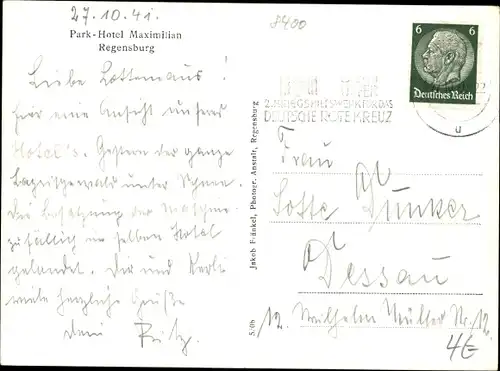 27.10.41.
8400
Park-Hotel Maximilian
Regensburg
Liebe Lottemaus!
hier eine Ansicht unseres
Hotel's. Gestern der ganze
unter Schnee.
Die Besatzung der Maschine
zufällig im selben Hotel
gelandet. Dir und
viele herzliche Grüße
Dein Fritz.
Jakob Fränkel, Photogr. Anstalt, Regensburg
5/06
6 6
Deutsches Reich
2. KRIEGSHILFSWERK FÜR DAS
DEUTSCHE ROTE KREUZ
u
Frau
Lotte Dünker
Dessau
12. Wilhelm Müller Str. 12.
4E